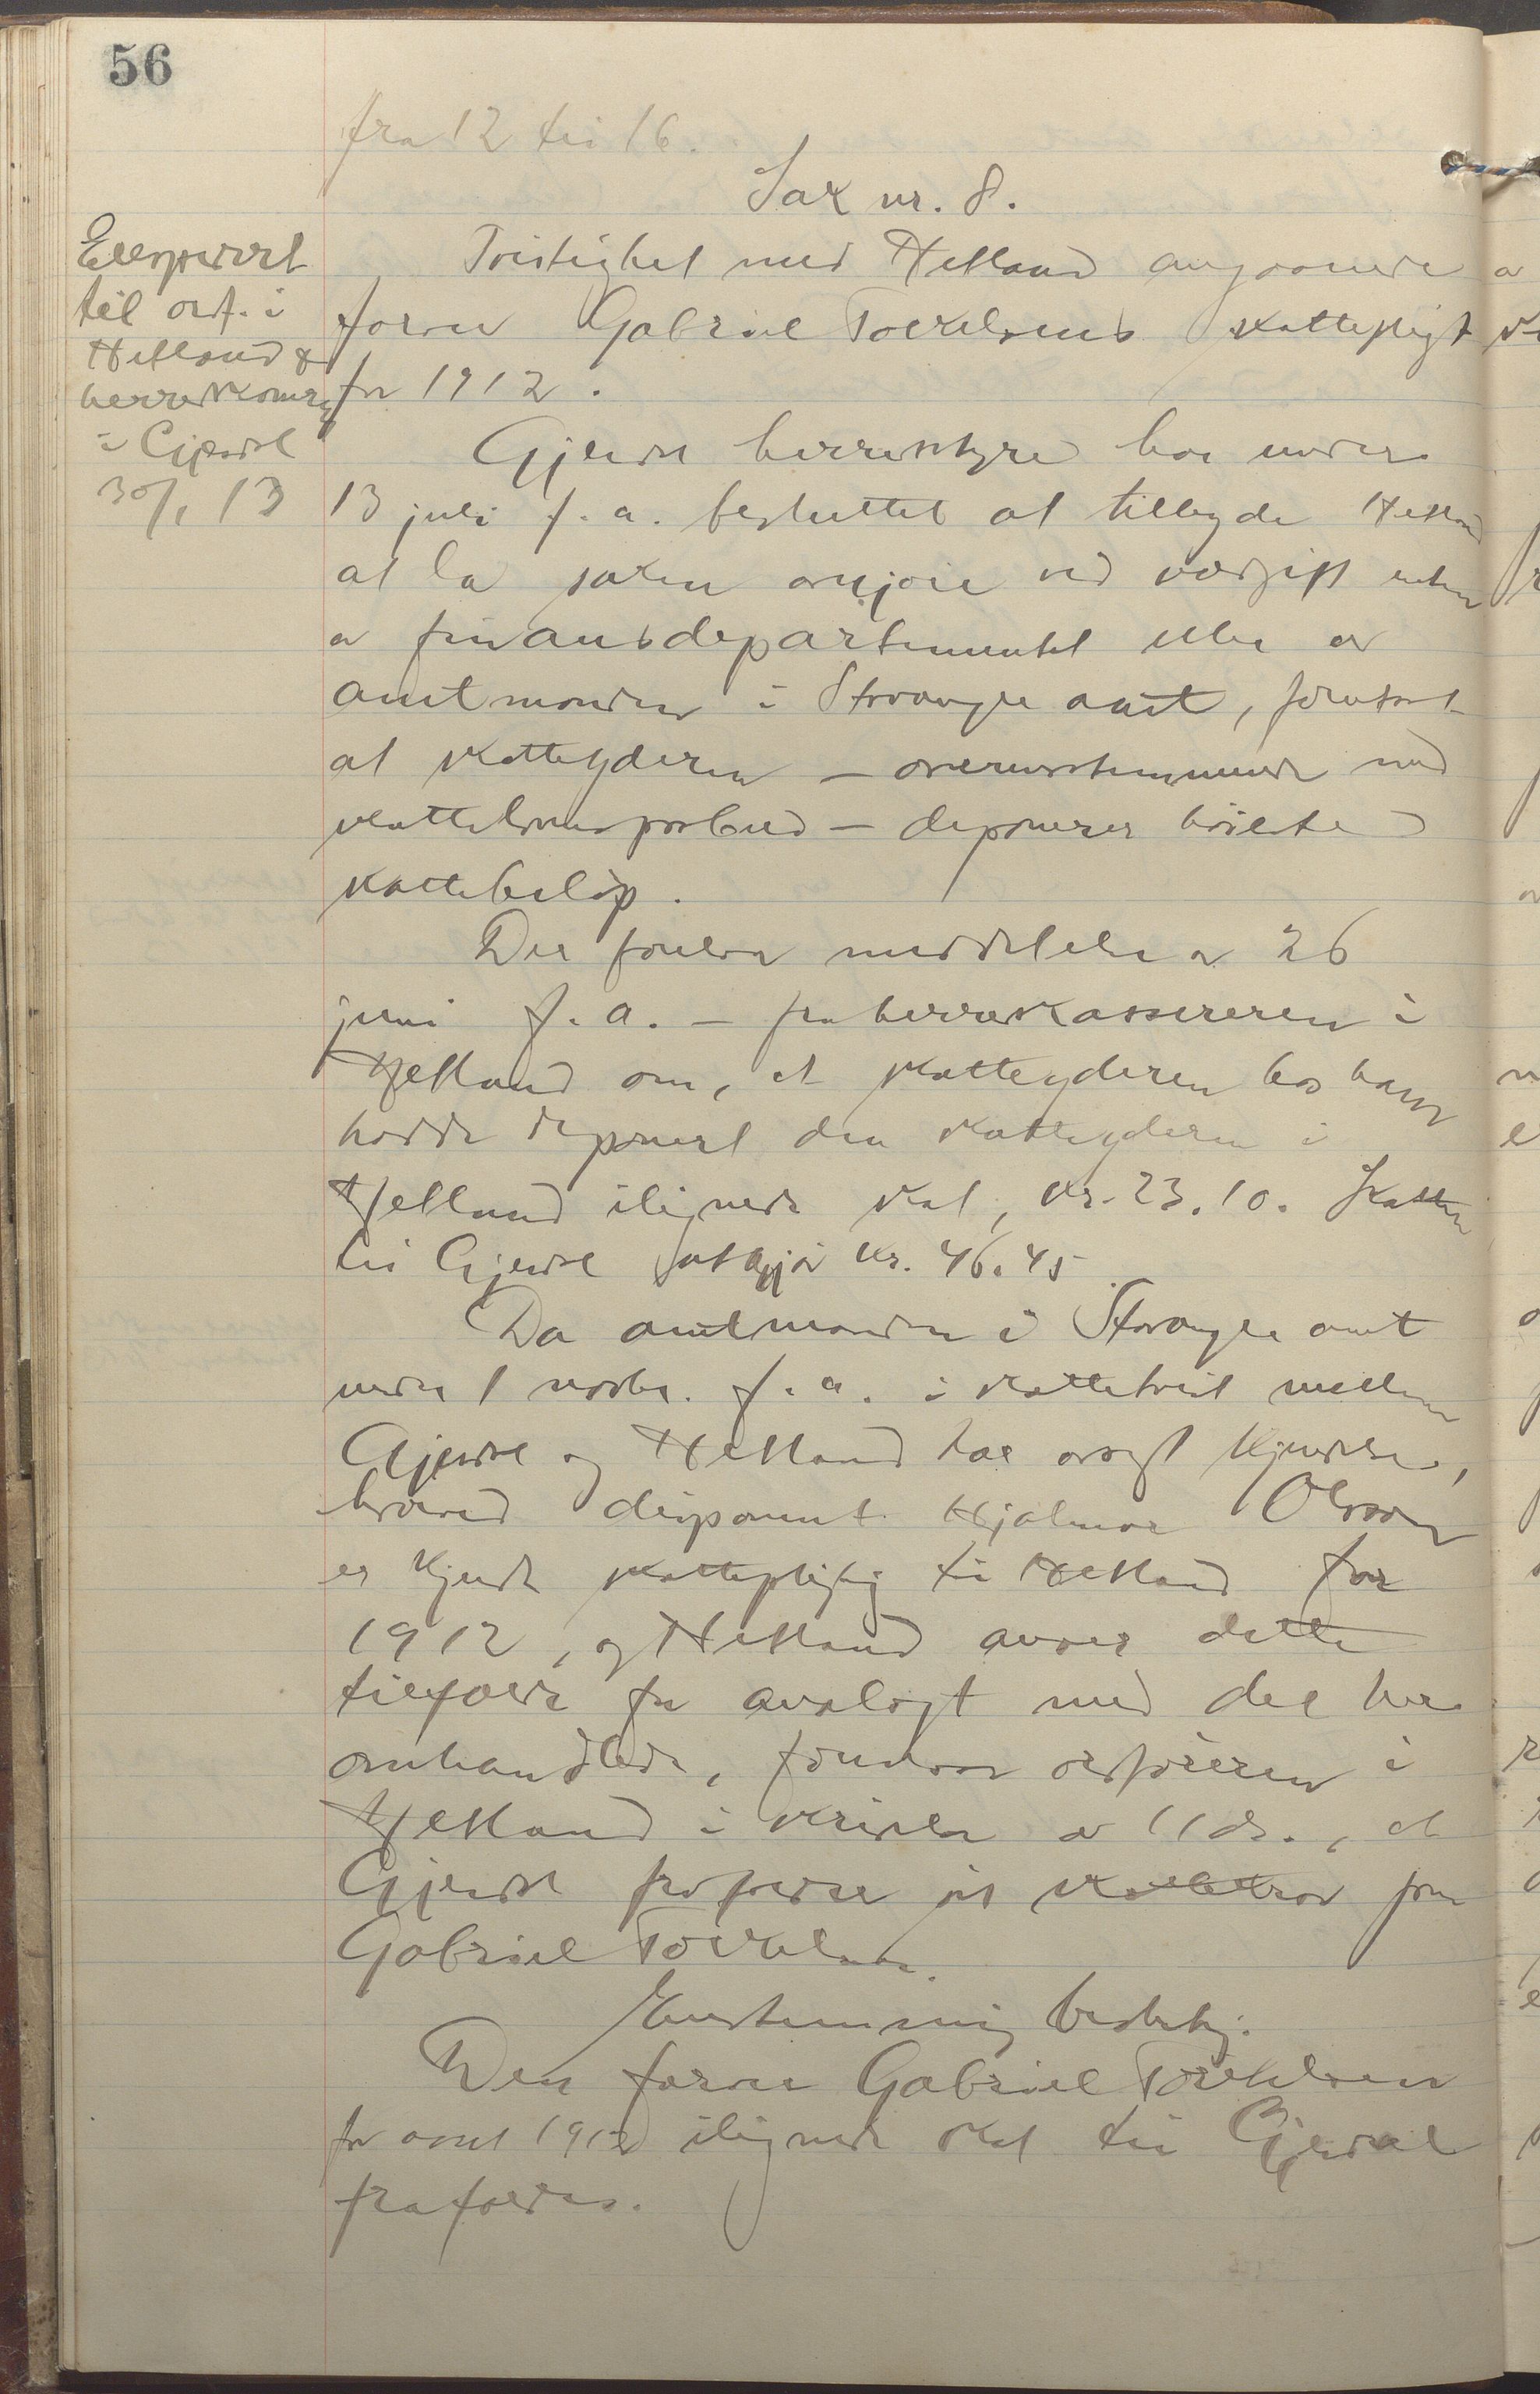 56
fra 12 til 16.
Sak nr. 8.
Tvistighet med Hetland angaaende
forrv Gabriel Torkelsens skattepligt
for 1912.
Expedert
til orf. i
Hetland &
herredskasserer
i Gjesdal
30/1 13
Gjesdal herredstyre har under
13 juli f. a. besluttet at tilbyde Hetland
at la saken avgjøre ved voldgift enten
av finansdepartementet eller av
amtmanden i Stavanger amt, forutsat
at skatteyderen – overensstemmende med
skattelovens paabud – deponerer høieste
skattebeløp.
Der foreligger meddelelse av 26
juni f. a. – fra herredskassereren i
Hetland om, at skatteyderen hos ham
hadde deponert den skatteyderen i
Hetland ilignede skat, kr. 23.10. Skatten
til Gjesdal utgjør kr. 46.45.
Da amtmanden i Stavanger amt
under 1 novbr. f. a. i skattetvist mellem
Gjesdal og Hetland har avsagt kjendelse,
hvorved disponent Hjalmar Olsson
er kjendt skattepligtig til Hetland for
1912, og Hetland anser dette
tilfælde for analogt med det her
omhandlede, foreslaar ordføreren i
Hetland i skrivelse av 11 ds., at
Gjesdal frafalder sit skattekrav paa
Gabriel Torkelsen.
Enstemmig beslutning:
Den Gabriel Torkelsen
for aaret 1912 ilignede skat til Gjesdal
frafaldes.